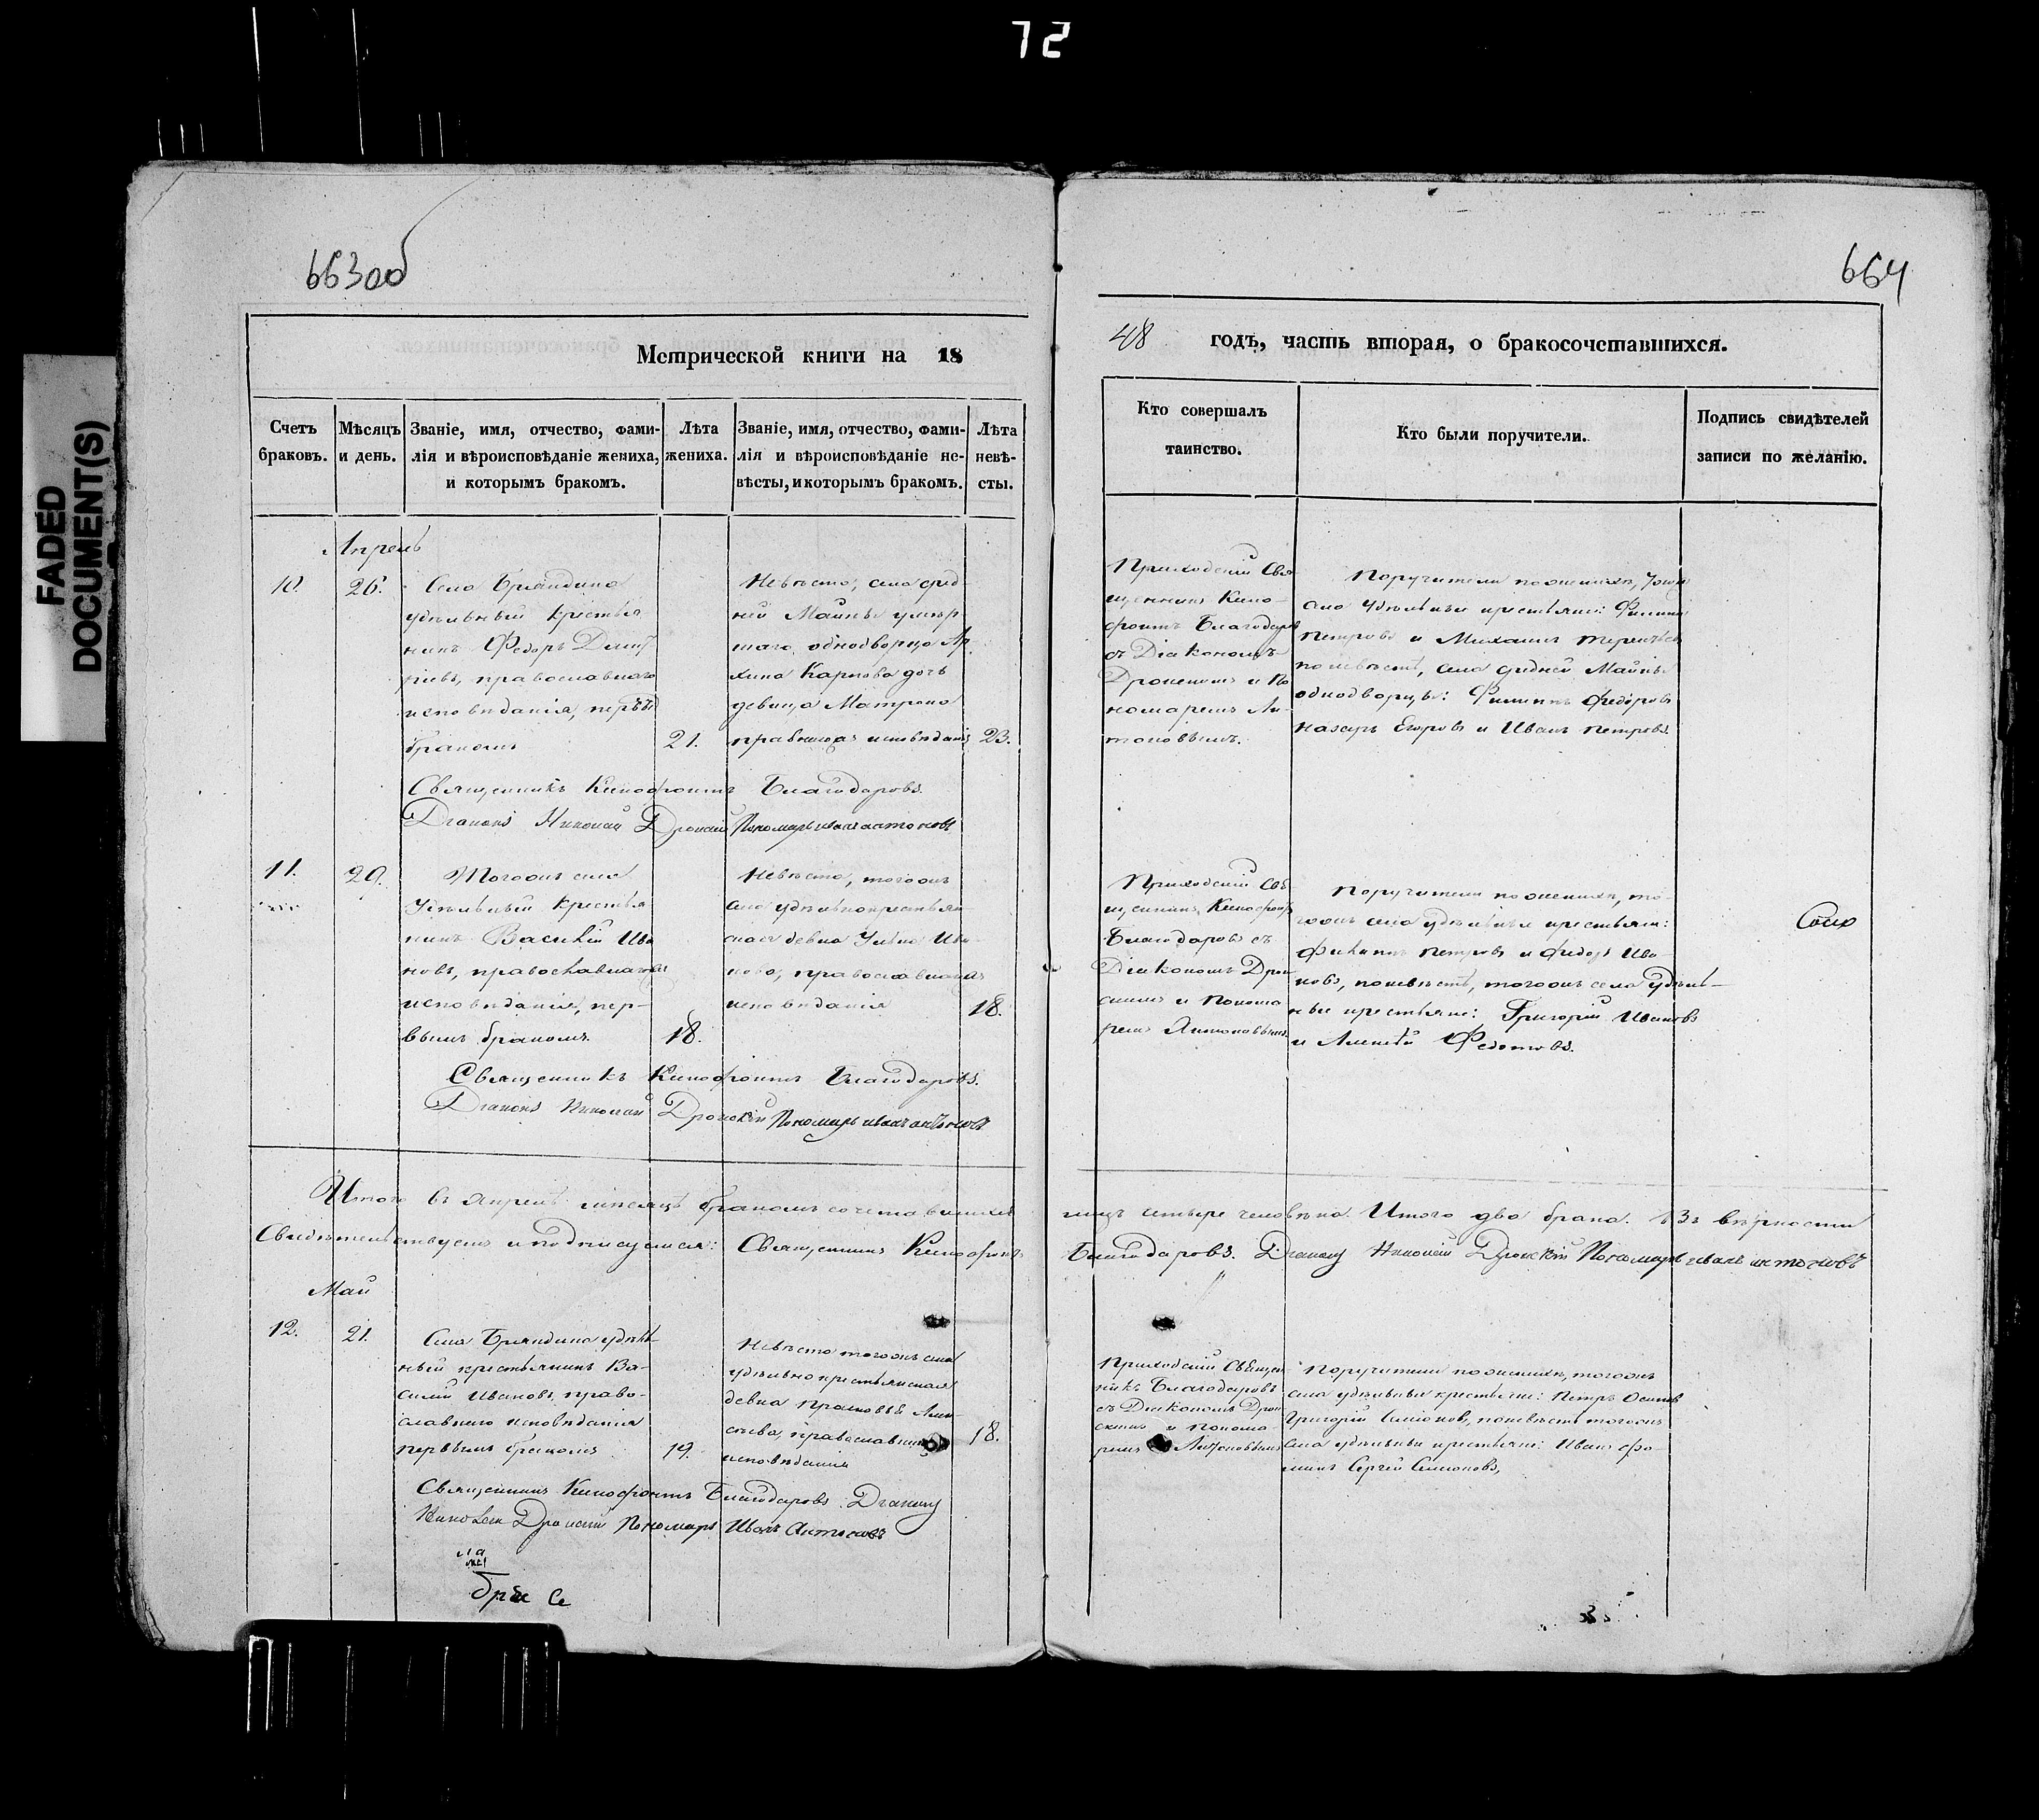 72
FADED
DOCUMENT(S)
663об
664
Метрической книги на 18
48 годъ, часть вторая, о бракосочетавшихся.
Счетъ браковъ.
Мѣсяцъ и день.
Званіе, имя, отчество, фами-
лія и вѣроисповѣданіе жениха,
и которымъ бракомъ.
Лѣта жениха.
Званіе, имя, отчество, фами-
лія и вѣроисповѣданіе не-
вѣсты, и которымъ бракомъ.
Лѣта невѣ-
сты.
Кто совершалъ
таинство.
Кто были поручители.
Подпись свидѣтелей
записи по желанію.
Апрель
10. 26.
Села Бряндина
удѣльный крестья
нинъ Федоръ Дмит
ріевъ, православнаго
исповѣданія, первымъ
бракомъ 21.
Невѣста, села сред
ней Майны умер
шаго однодворца Ар
хипа Карпова дочь
девица Матрена
исповѣданія 23.
Приходскій Свя
щенникъ Ксено
фонтъ Благодаровъ
съ Діакономъ
Дронскимъ и По
номаремъ Ан
тоновымъ.
Поручители по женихѣ,
села удѣльные крестьяне: Филипъ
Петровъ и Михаилъ Терентьев
по невѣстѣ, села средней Майны
однодворцы: Филипъ Федоровъ
Назаръ Егоровъ и Иванъ Петровъ.
Священникъ Ксенофонтъ Благодаровъ.
Діаконъ Николай Дронскій Пономарь Иванъ Антоновъ
11. 29.
Тогожъ села
Удѣльный Крестья
нинъ Василій Ива
новъ, православнаго
исповѣданія, пер-
вымъ бракомъ. 18.
Невѣста, тогожъ
села удѣльнокрестьян
ская девка Ива
нова, православнаго
исповѣданія 18.
Приходскій Свя
щенникъ Ксенофонтъ
Благодаровъ съ
Діакономъ Дрон
скимъ и Понома
ремъ Антоновымъ
Поручители по женихѣ, то-
гожъ села удѣльные крестьяне:
Филипъ Петровъ и Федоръ Ива-
новъ, по невѣстѣ, тогожъ села удѣль-
ные крестьяне: Григорій Ивановъ
и Алексѣй Федотовъ.
Священникъ Ксенофонтъ Благодаровъ.
Діаконъ Николай Дронскій Пономарь Иванъ Антоновъ
Итого въ Апрелѣ мѣсяцѣ бракомъ сочетавшихся
лицъ четыре человѣка. Итого два брака. Въ верности
Свидѣтельствуемъ и подписуемся: Священникъ Ксенофонтъ
Благодаровъ. Діаконъ Николай Дронскій Пономарь Иванъ Антоновъ
Май
12. 21.
Села Бряндина удѣль
ный крестьянинъ Ва-
силій Ивановъ, право-
славнаго исповѣданія
первымъ бракомъ 19.
Невѣста тогожъ села
удѣльнокрестьянская
девка Прасковья Алек
сѣева, православнаго
исповѣданія 18.
Приходскій Священ
никъ Благодаровъ
съ Діакономъ Дрон
скимъ и Понома
ремъ Антоновымъ
Поручители по женихѣ, тогожъ
села удѣльные крестьяне: Петръ Осиповъ
Григорій Симоновъ, по невѣстѣ тогожъ
села удѣльные крестьяне: Иванъ Фо-
минъ Сергѣй Симоновъ,
Священникъ Ксенофонтъ Благодаровъ Діаконъ
Николай Дронскій Пономарь Иванъ Антоновъ